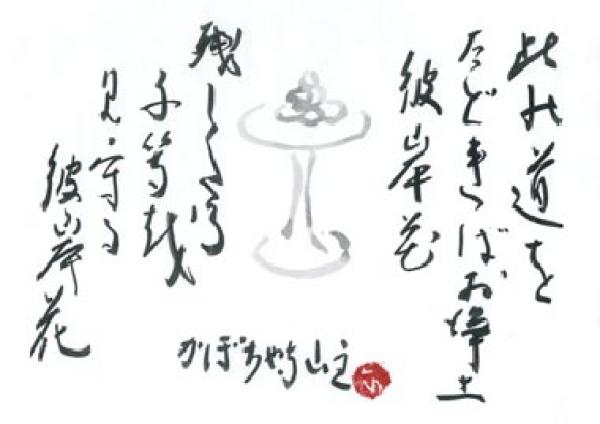 此の道を
たどればお浄土
彼岸花
残したる
子等を
見守る
彼岸花
かぼちゃ山主